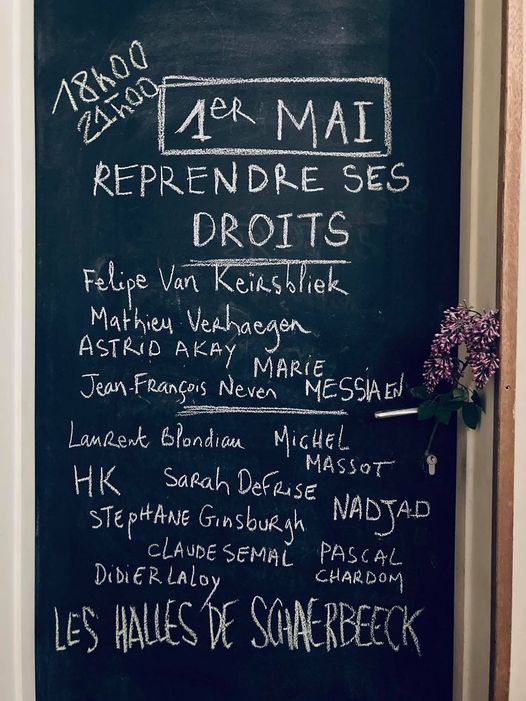 18h00
21h00
1ER MAI
REPRENDRE SES
DROITS
Felipe Van Keirsbliek
Mathieu Verhaegen
ASTRID AKAY
MARIE
MESSIAEN
Jean-François Neven
Laurent Blondiau
MICHEL
MASSOT
HK
Sarah DeFRISE
NADJAD
STEPHANE Ginsburgh
CLAUDE SEMAL
PASCAL
CHARDOM
DiDiER LALOY
LES HALLES DE SCHAERBEECK